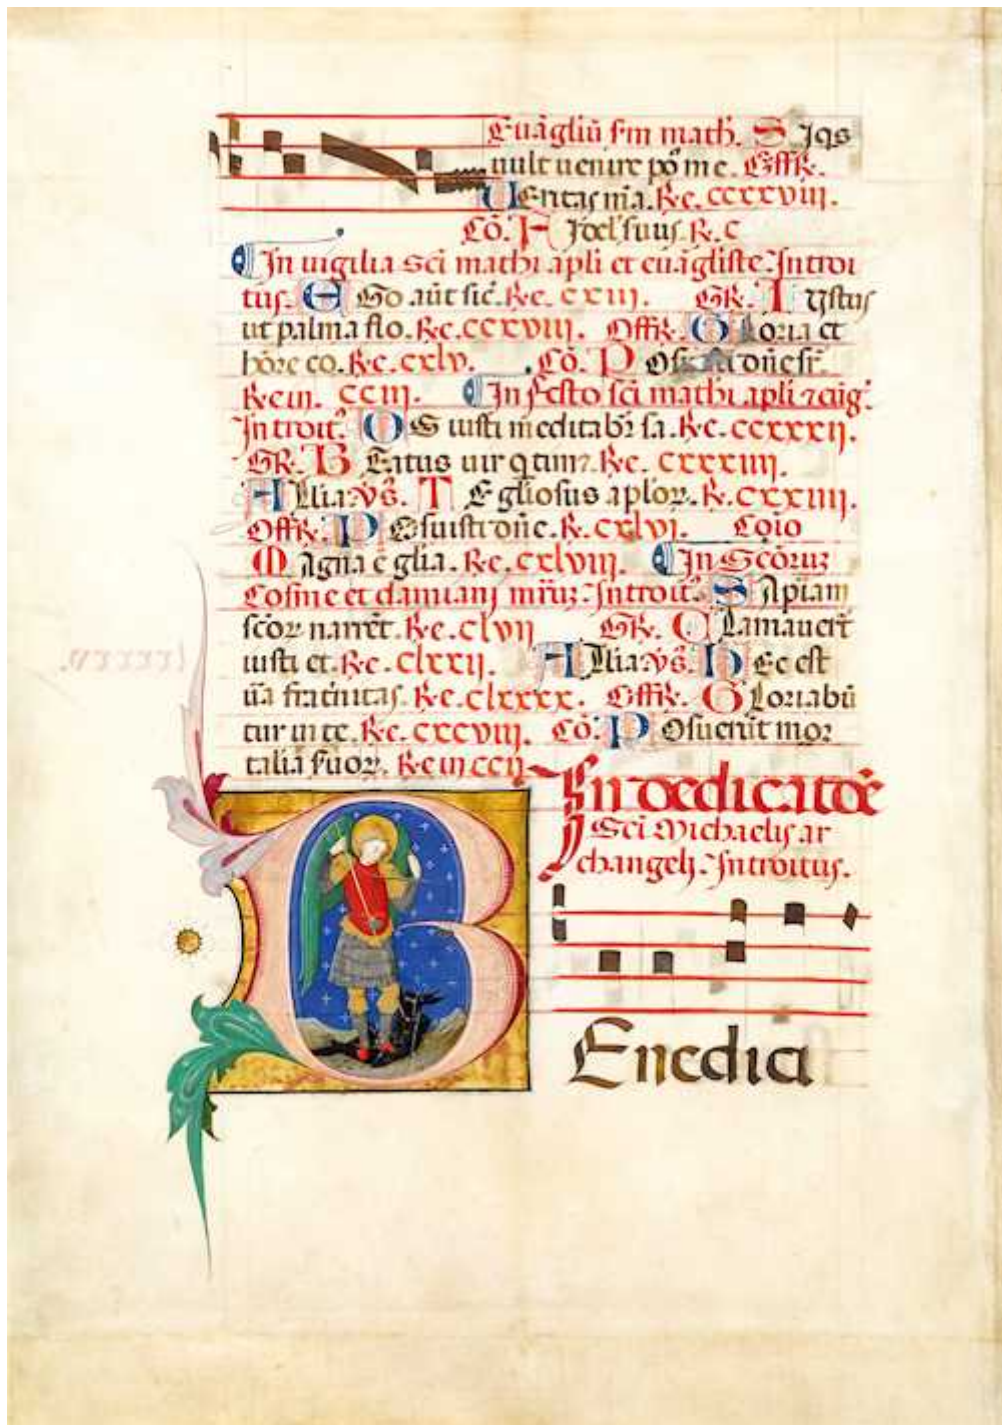 Euāgliū s'm math̄. Siqs
uult uenire pō me. Offr̄.
Ueritas m̄a. R̄e. ccxxxviii.
Cō. R̄. c
In uigilia sc̄i mathi apl̄i et euāgliste. Introi
tus. Ego aūt sic̄. R̄e. cxiii. GR̄. Iustus
ut palma flo. R̄e. ccxviii. Offr̄. Gloria et
hōre co. R̄e. cxlv. Cō. Posuisti dn̄e sr̄.
R̄e in. cciii. In festo sc̄i mathi apl̄i
Introit̄. Os iusti meditab̄r sa. R̄e. ccxxxii.
GR̄. Beatus uir q tim. R̄e. cxxxiiii.
All̄ia. v̄s. Te gl̄iosus aplor. R̄. cxxiiii.
Offr̄. Posuisti dn̄e. R̄. cxlvi. Coīo
Magna ē gl̄ia. R̄e. cxlviii. In Scōruz
Cosme et damianj mr̄uz. Introit̄. Sapiam
sc̄or narrēt. R̄e. clvii GR̄. Clamauer̄t
iusti et. R̄e. clxxii. All̄ia. v̄s. Hec est
ūa frat̄nitas. R̄e. clxxxx. Offr̄. Gloriabū
tur in te. R̄e. cxcviii. Cō. Posuer̄ūt mor
talia suor. R̄e in ccii
In dedicatōe
Sc̄i Michaelis ar
changelj. Introitus.
Benedici